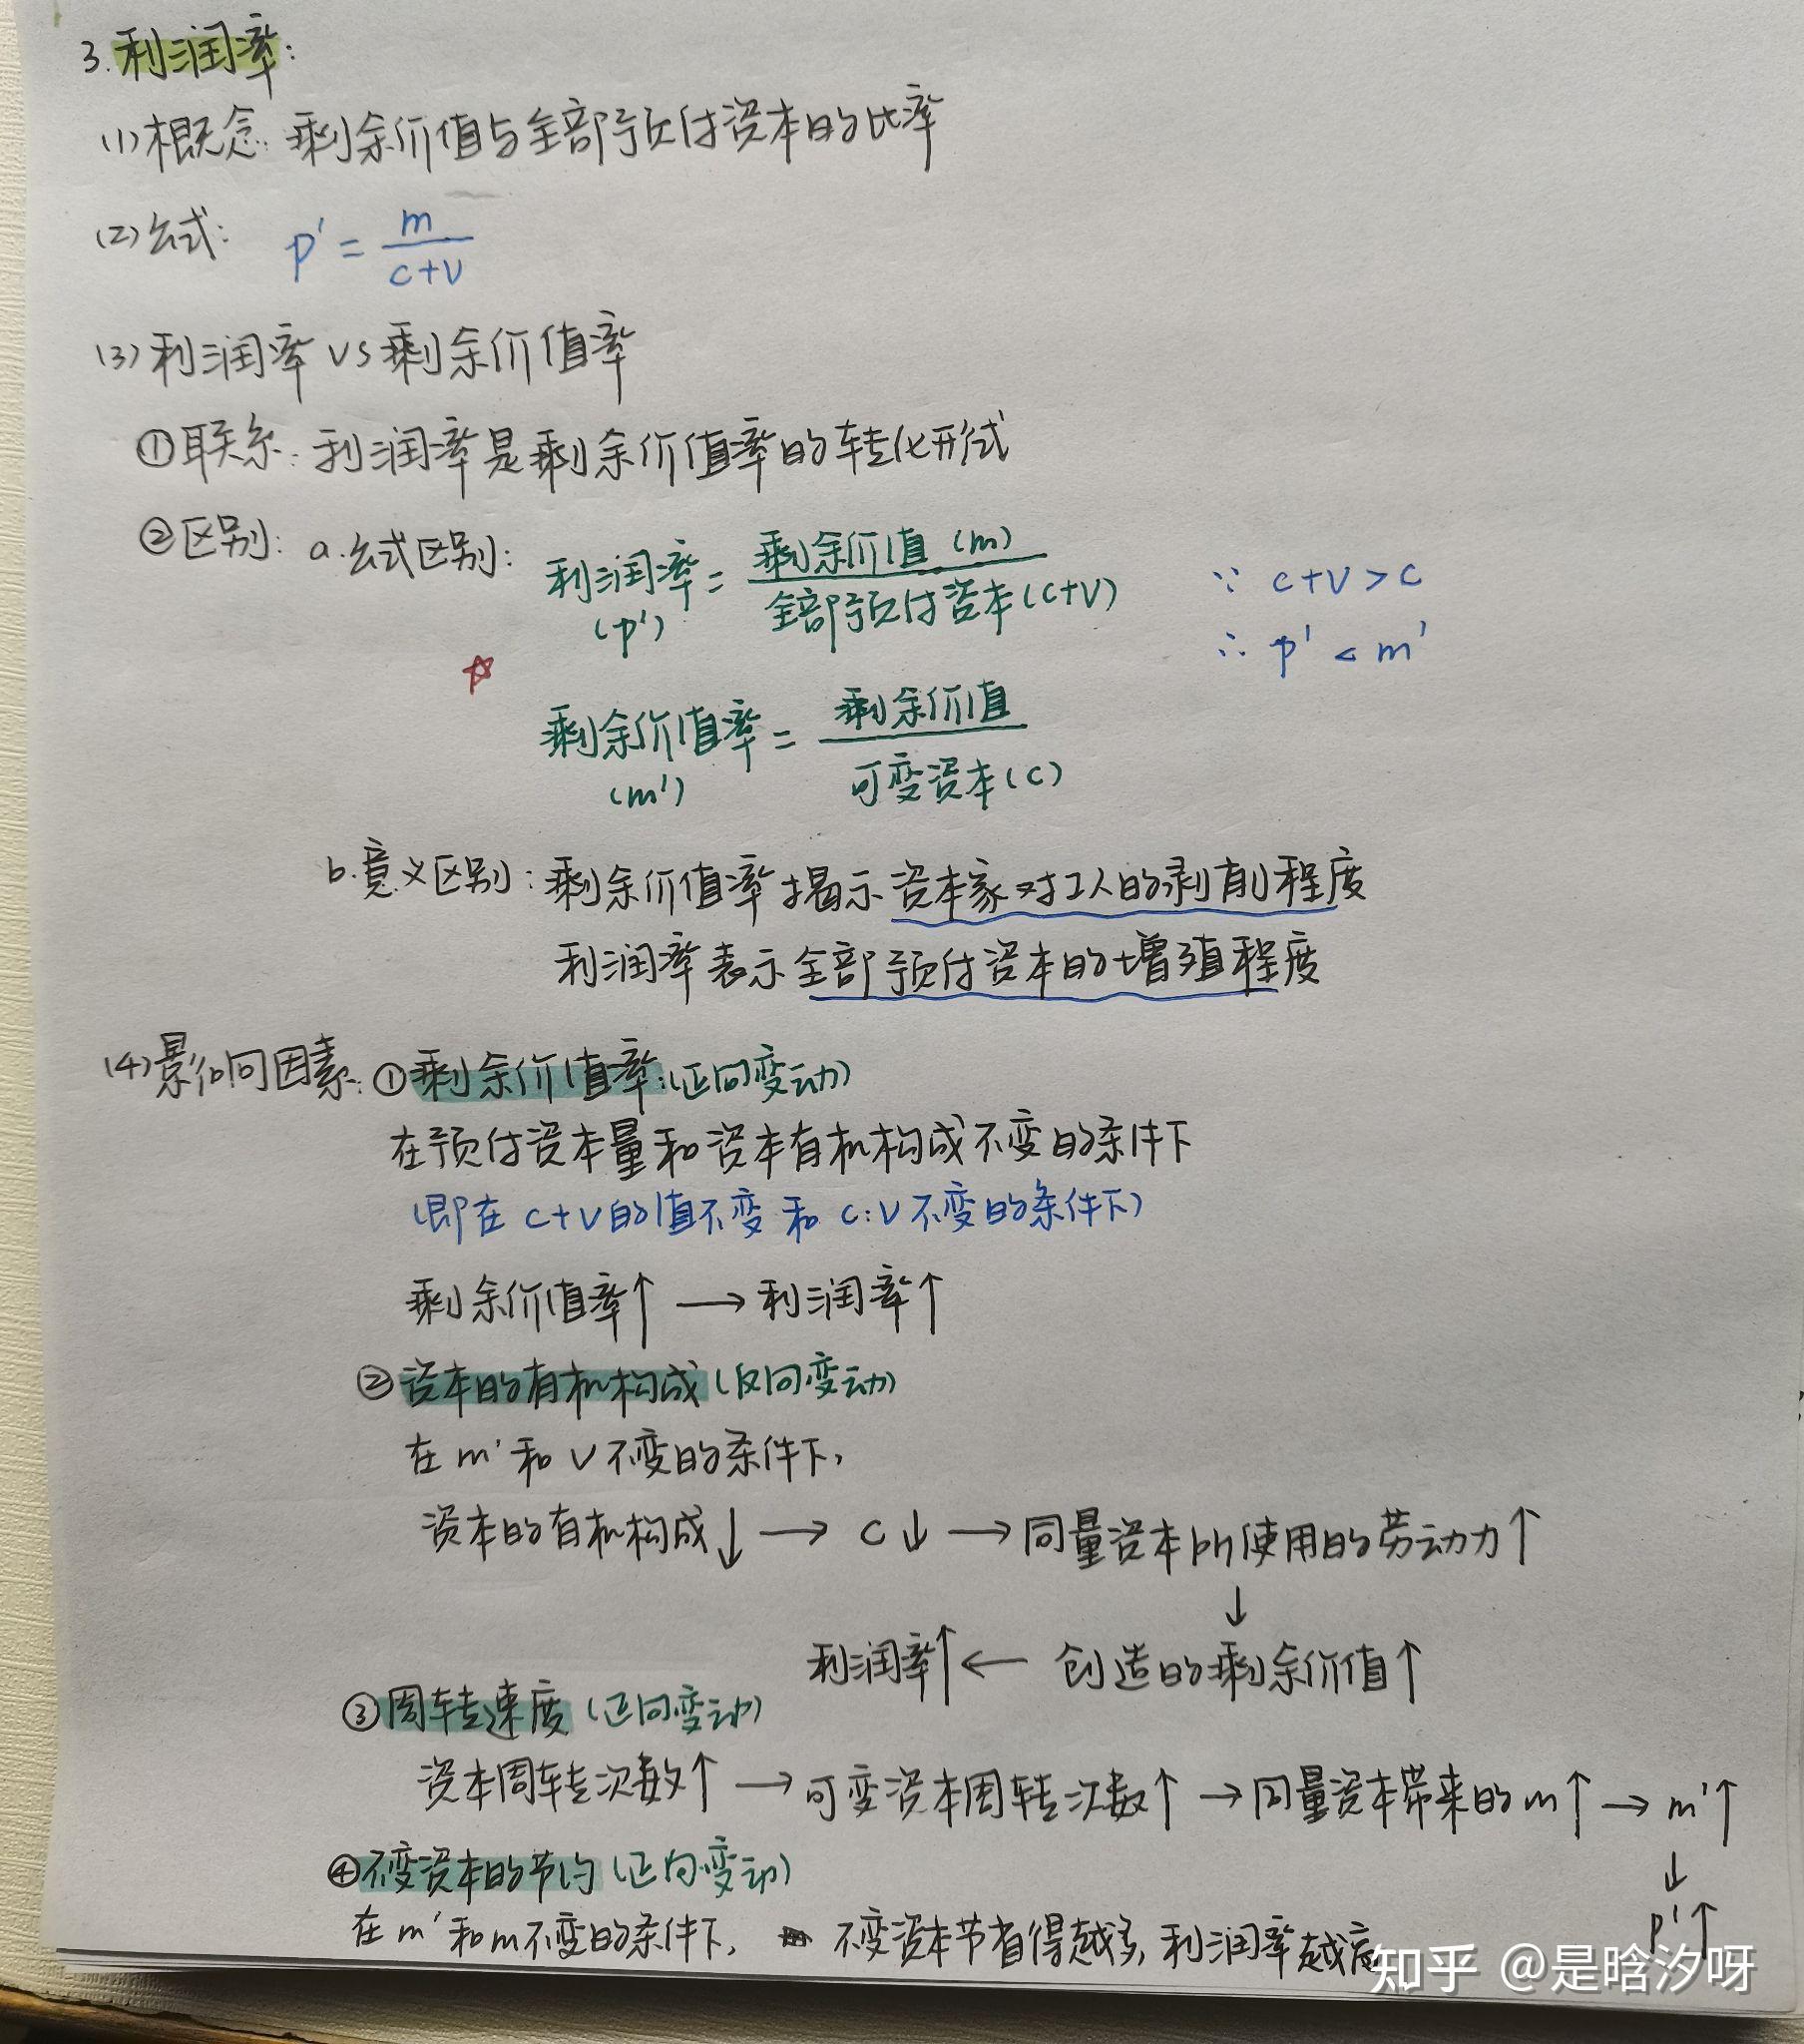 3.利润率:
(1)概念:剩余价值与全部预付资本的比率
(2)公式: p' = m/(c+v)
(3)利润率 VS 剩余价值率
①联系:利润率是剩余价值率的转化形式
②区别: a.公式区别: 利润率(p') = 剩余价值(m)/全部预付资本(c+v)
∵ c+v>c
∴ p' < m'
☆
剩余价值率(m') = 剩余价值/可变资本(c)
b.意义区别:剩余价值率揭示资本家对工人的剥削程度
利润率表示全部预付资本的增殖程度
(4)影响因素:①剩余价值率:(正向变动)
在预付资本量和资本有机构成不变的条件下
(即在c+v的值不变 和 c:v不变的条件下)
剩余价值率↑ → 利润率↑
②资本的有机构成(反向变动)
在m'和v不变的条件下,
资本的有机构成↓ → c↓ → 同量资本所使用的劳动力↑
↓
利润率↑ ← 创造的剩余价值↑
③周转速度(正向变动)
资本周转次数↑ → 可变资本周转次数↑ → 同量资本带来的m↑ → m'↑
↓
p'↑
④不变资本的节约(正向变动)
在m'和m不变的条件下, 不变资本节省得越多,利润率越高
知乎 @是晗汐呀